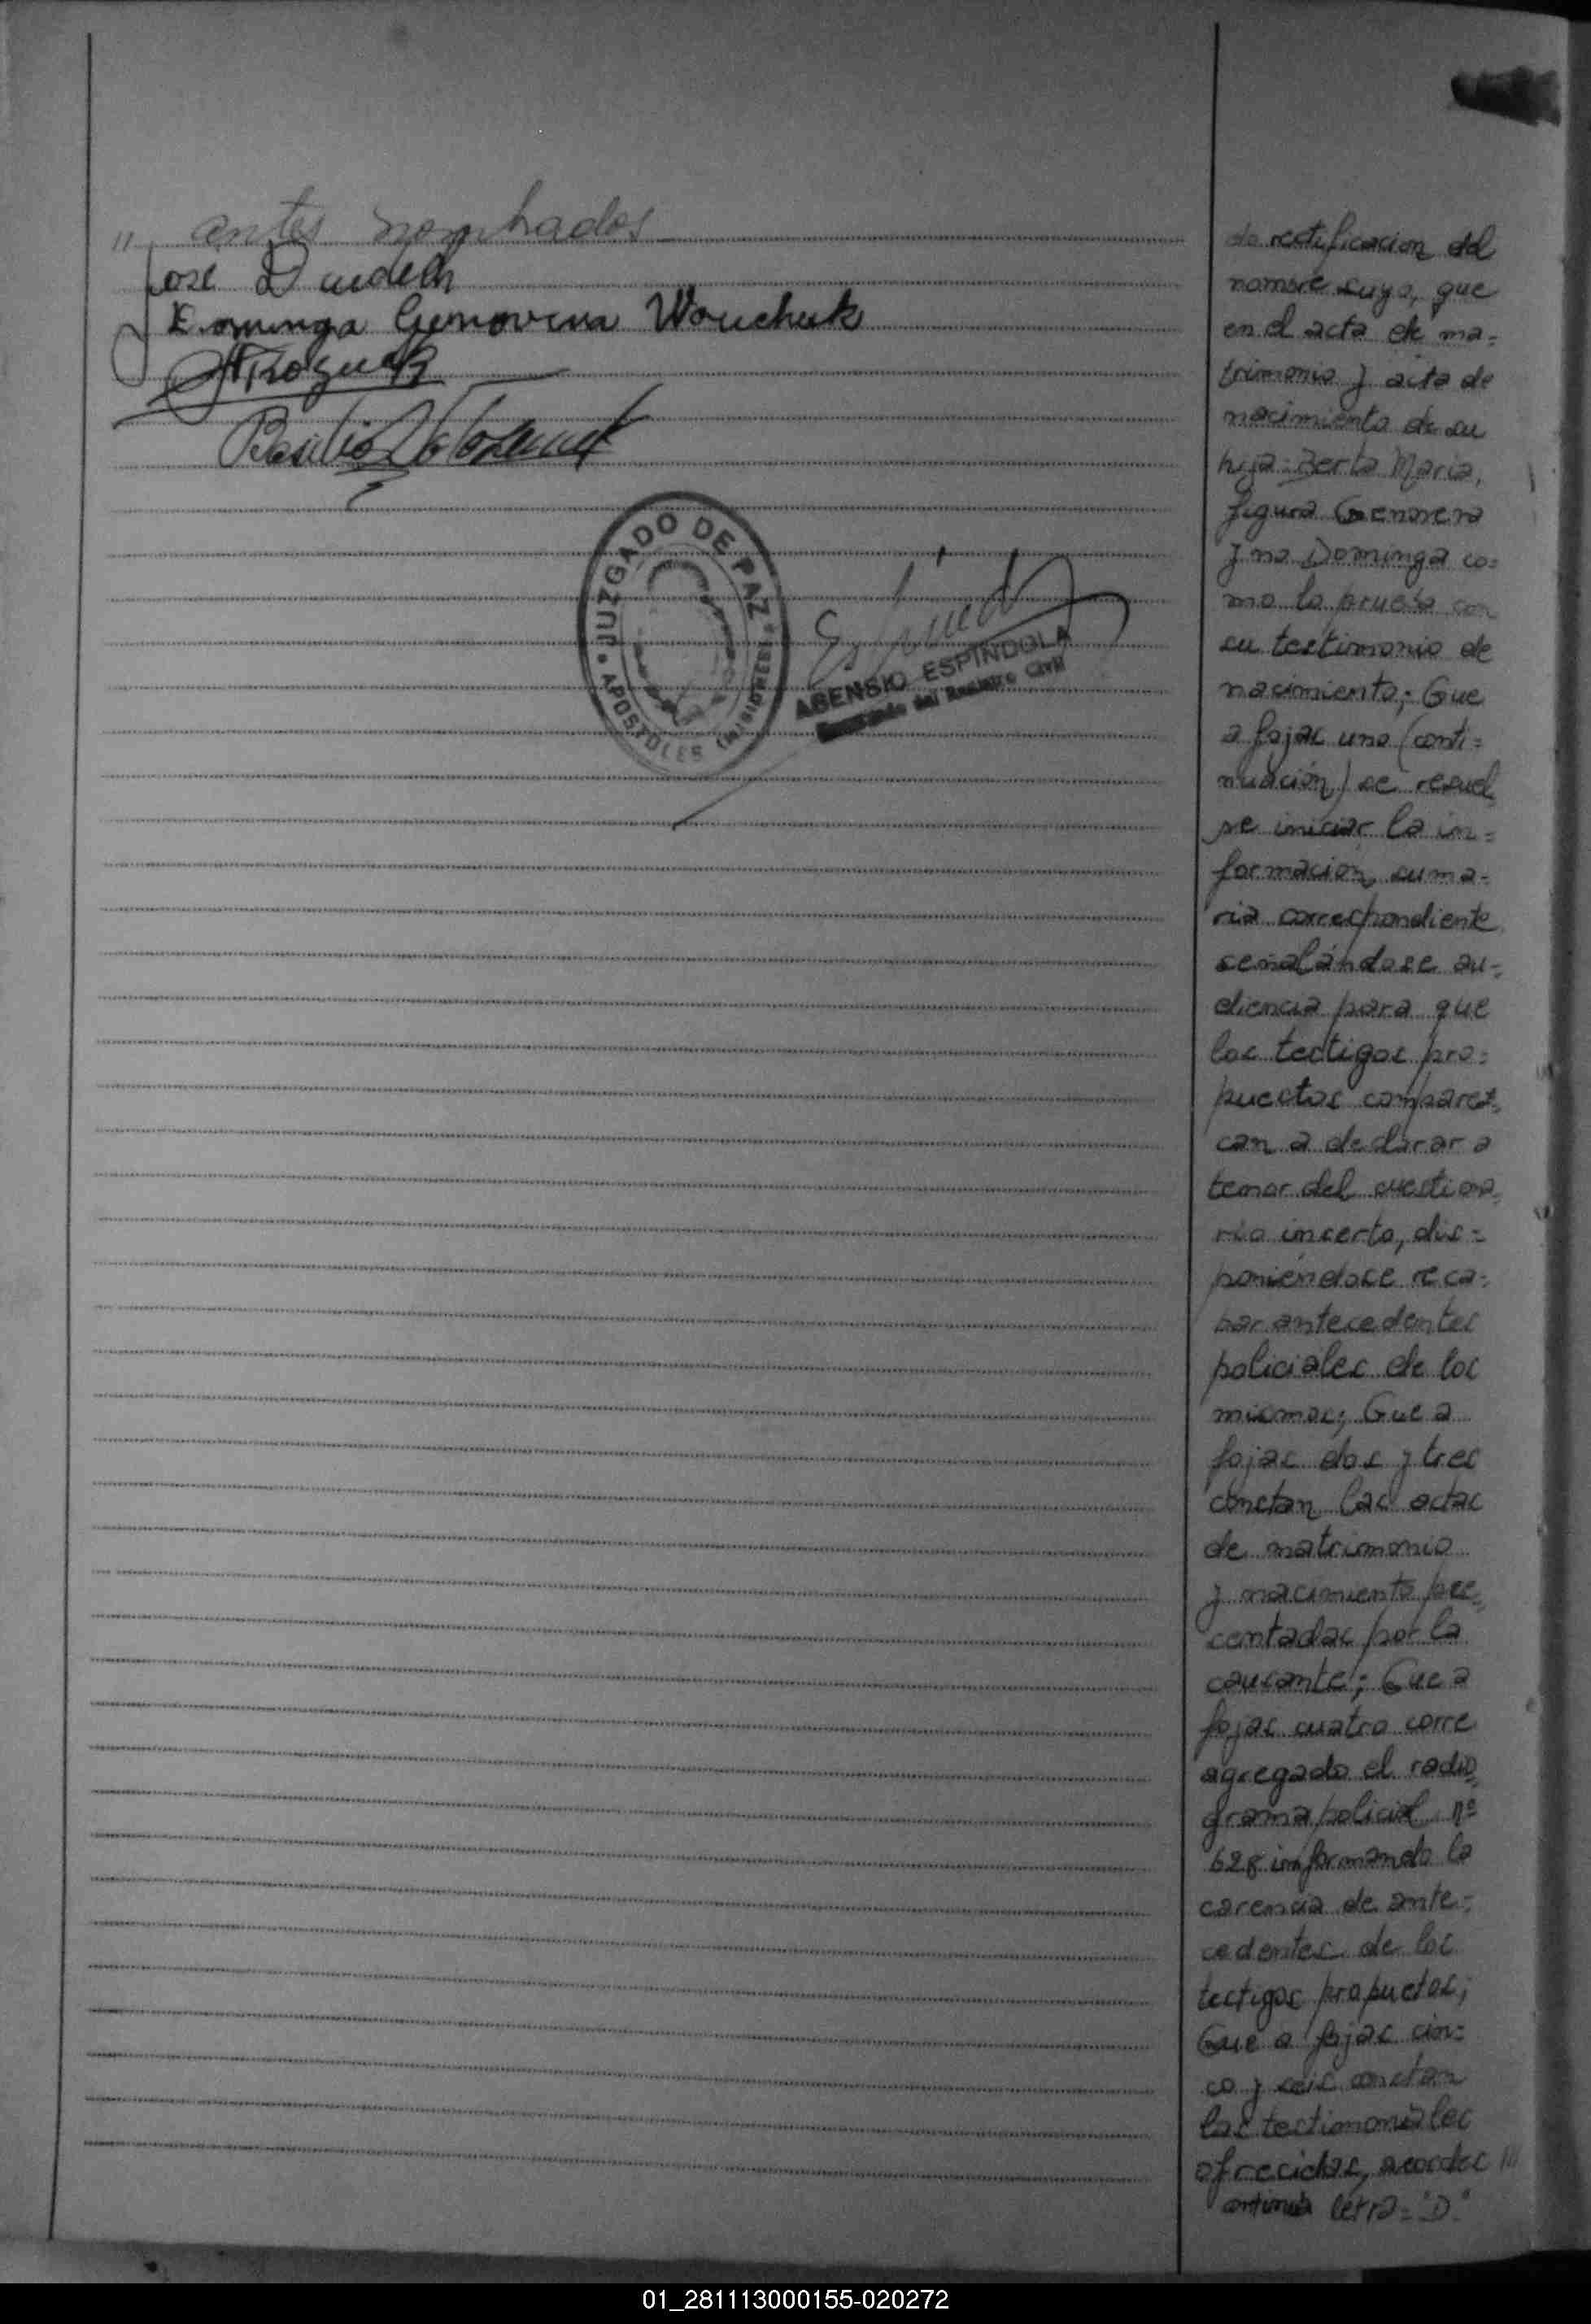 " antes nombrados
José Dudek
Dominga Genoveva Wouchuk
Basilio
JUZGADO DE PAZ
APOSTOLES (MISIONES)
ASENSIO ESPINDOLA
Encargado del Registro Civil
do rectificacion del
nombre suyo, que
en el acta de ma=
trimonio y acta de
nacimiento de su
hija: Berta Maria,
figura Genoveva
y no Dominga co=
mo lo prueba con
su testimonio de
nacimiento; Que
a fojas uno (conti=
nuación) se resuel
ve iniciar la in=
formacion suma=
ria correspondiente
señalándose au=
diencia para que
los testigos pro=
puestos comparez=
can a declarar a
tenor del cuestiona=
rio inserto, dis=
poniéndose reca=
bar antecedentes
policiales de los
mismos; Que a
fojas dos y tres
constan las actas
de matrimonio
y nacimiento pre=
sentadas por la
causante; Que a
fojas cuatro corre
agregado el radio=
grama policial nº
628 informando la
carencia de ante=
cedentes de los
testigos propuetos;
Que a fojas cin=
co y seis constan
las testimoniales
ofrecidas, acordes ///
continua letra= "D"
01_281113000155-020272